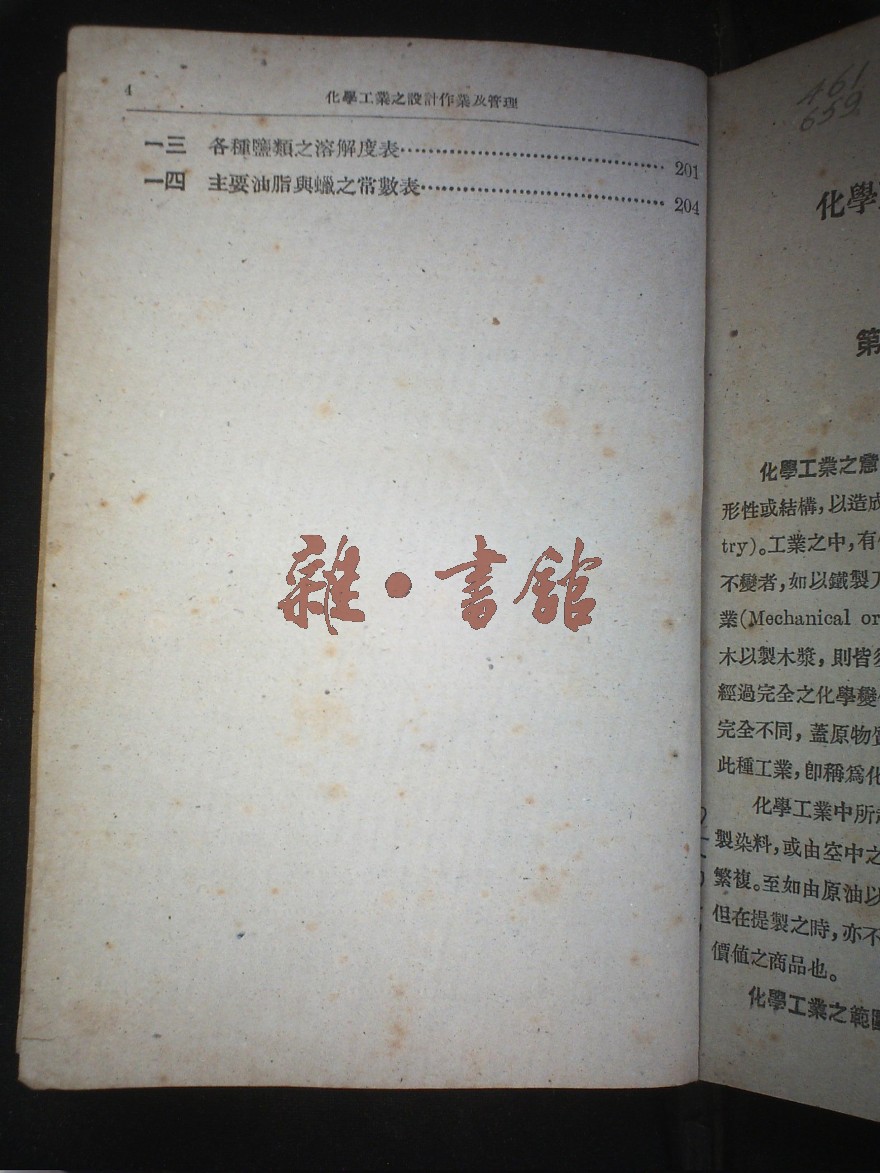 4 化學工業之設計作業及管理
一三 各種鹽類之溶解度表 201
一四 主要油脂與蠟之常數表 204
雜•書館
461
659
化學
第
化學工業之意
形性或結構,以造成
try)。工業之中,有
不變者,如以鐵製刀
業(Mechanical or
木以製木漿,則皆
經過完全之化學變
完全不同,蓋原物質
此種工業,卽稱爲化
化學工業中所
製染料,或由空中之
繁複。至如由原油以
但在提製之時,亦不
價値之商品也。
化學工業之範圍